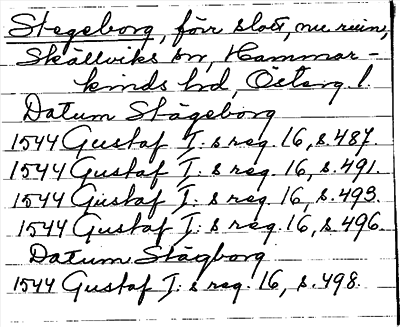 Stegeborg, förr slott, nu ruin,
Skällviks sn, Hammar-
kinds hd, Österg. l.
Datum Stägeborg
1544 Gustaf I: s reg. 16, s. 487.
1544 Gustaf I: s reg. 16, s. 491.
1544 Gustaf I: s reg. 16, s. 493.
1544 Gustaf I: s reg. 16, s. 496.
Datum Stägborg
1544 Gustaf I: s reg. 16, s. 498.